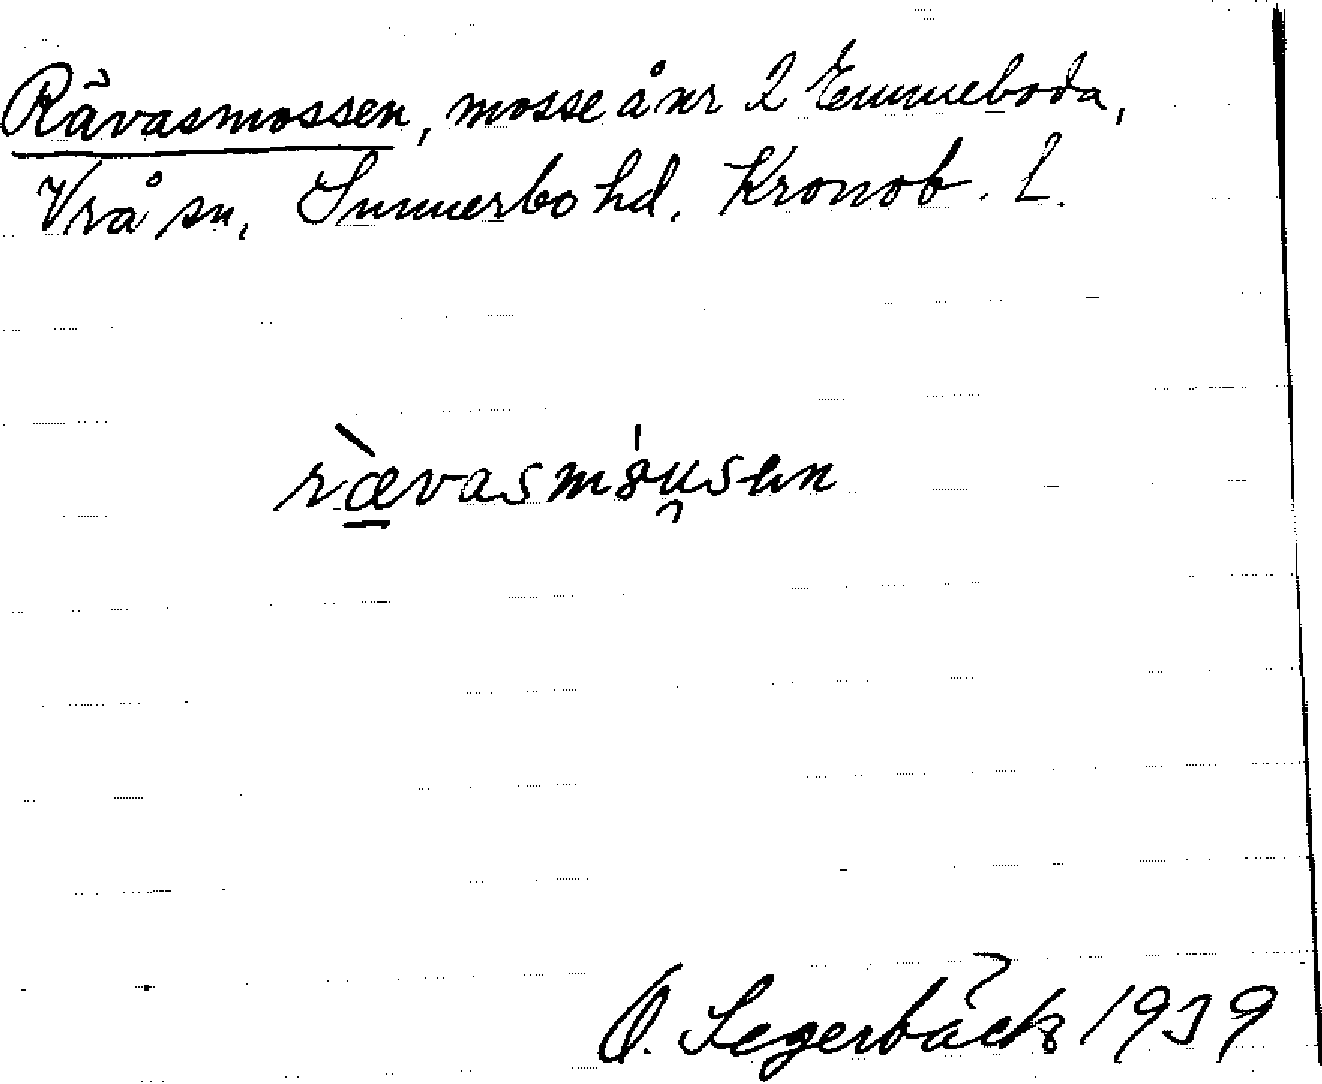 Rävasmossen, mosse å nr 2 Emmeboda,
Vrå sn, Sunnerbo hd. Kronob. L.
rævasmȯu̯sen
O. Segerbäck 1939